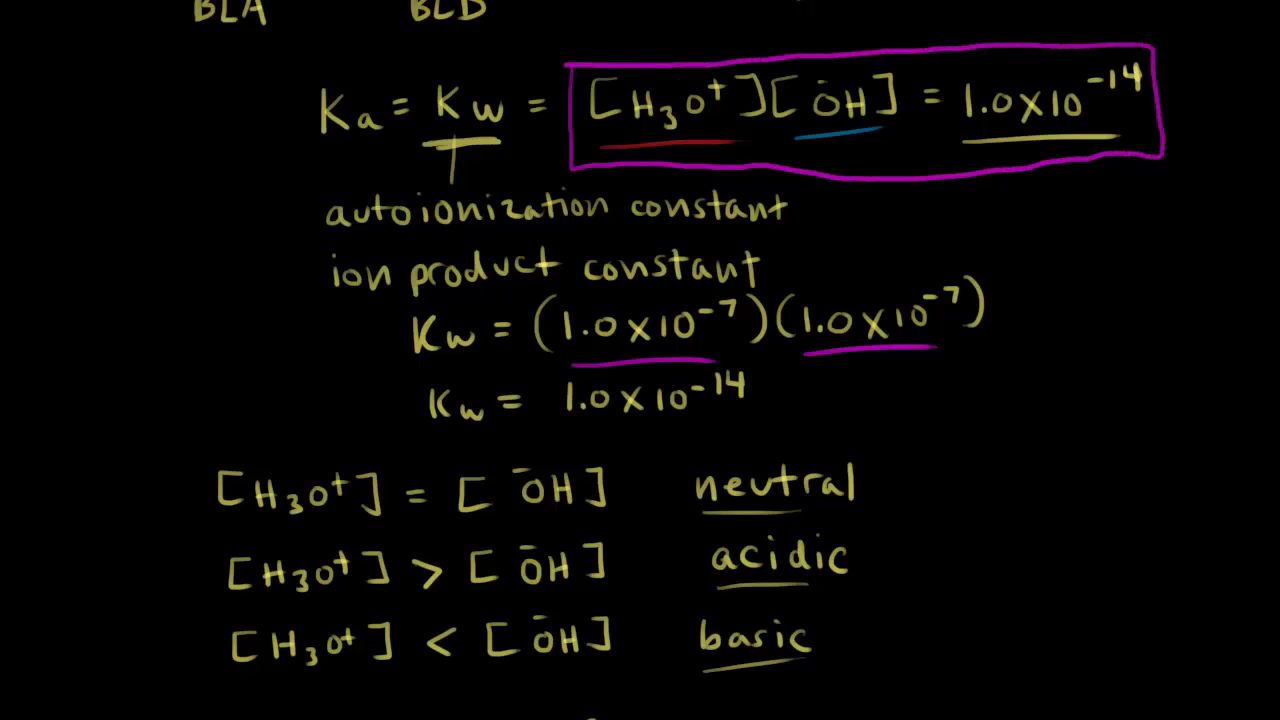 BLA BLD
Ka = Kw = [H₃O⁺][⁻OH] = 1.0×10⁻¹⁴
autoionization constant
ion product constant
Kw = (1.0×10⁻⁷)(1.0×10⁻⁷)
Kw = 1.0×10⁻¹⁴
[H₃O⁺] = [⁻OH] neutral
[H₃O⁺] > [⁻OH] acidic
[H₃O⁺] < [⁻OH] basic